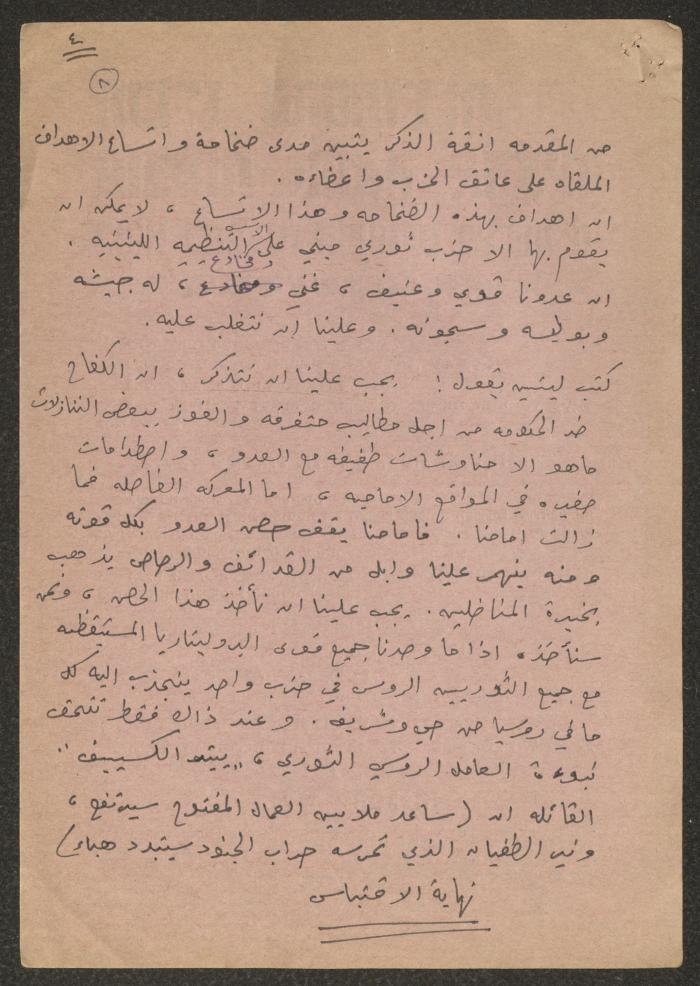 ٤
٨
من المقدمه انقة الذكر يتبين مدى ضخامة واتساع الاهداف
الملقاه على عاتق الحزب واعضاءه .
ان اهداف بهذه الضخامه وهذا الاتساع ، لا يمكن ان
يقوم بها الا حزب ثوري مبني على الاسس التنظيميه اللينينيه .
ان عدونا قوي وعنيف ، غني ومخادع ، له جيشه
وبوليسه وسجونه . وعلينا ان نتغلب عليه .
كتب لينين يقول : يجب علينا ان نتذكر ، ان الكفاح
ضد الحكومه من اجل مطاليب متفرقه والفوز ببعض التنازلات
ماهو الا مناوشات طفيفه مع العدو ، واصطدامات
صغيره في المواقع الاماميه ، اما المعركه الفاصله فما
زالت امامنا . فامامنا يقف حصن العدو بكل قوته
ومنه ينهمر علينا وابل من القذائف والرصاص يذهب
بخيرة المناضلين . يجب علينا ان نأخذ هذا الحصن ، ونحن
سنأخذه اذا ما وحدنا جميع قوى البروليتاريا المستيقظه
مع جميع الثوريين الروس في حزب واحد ينجذب اليه كل
ما في روسيا من حي وشريف . وعند ذاك فقط تتحقق
نبوءة العامل الروسي الثوري ، "بيتر الكسييف"
القائله ان (ساعد ملايين العمال المفتول سيرتفع ،
ونير الطغيان الذي تحرسه حراب الجنود سيتبدد هباء)
نهاية الاقتباس